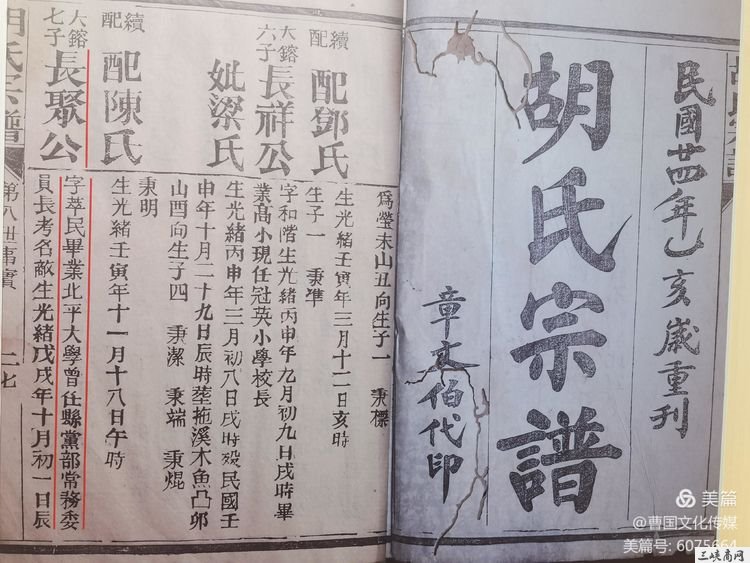 民國廿四年乙亥歲重刊
胡氏宗譜
章文伯代印
為瑩未山丑向生子一 秉標
續配
配鄧氏
生光緒壬寅年三月十二日亥時
生子一 秉準
大鎔六子
長祥公
字和階生光緒丙申年九月初九日戌時畢
業高小現任冠英小學校長
妣梁氏
生光緒丙申年三月初八日戌時歿民國壬
申年十月二十九日辰時塟拖溪木魚凸卯
山酉向生子四 秉潔 秉端 秉焜
秉明
續配
配陳氏
生光緒壬寅年十一月十八日午時
大鎔七子
長聚公
字萃民畢業北平大學曾任縣黨部常務委
員長考名敵生光緒戊戌年十月初一日辰
胡氏宗譜
第八世事實
二七
美篇
@曹国文化传媒
美篇号: 6075664
三峡商网